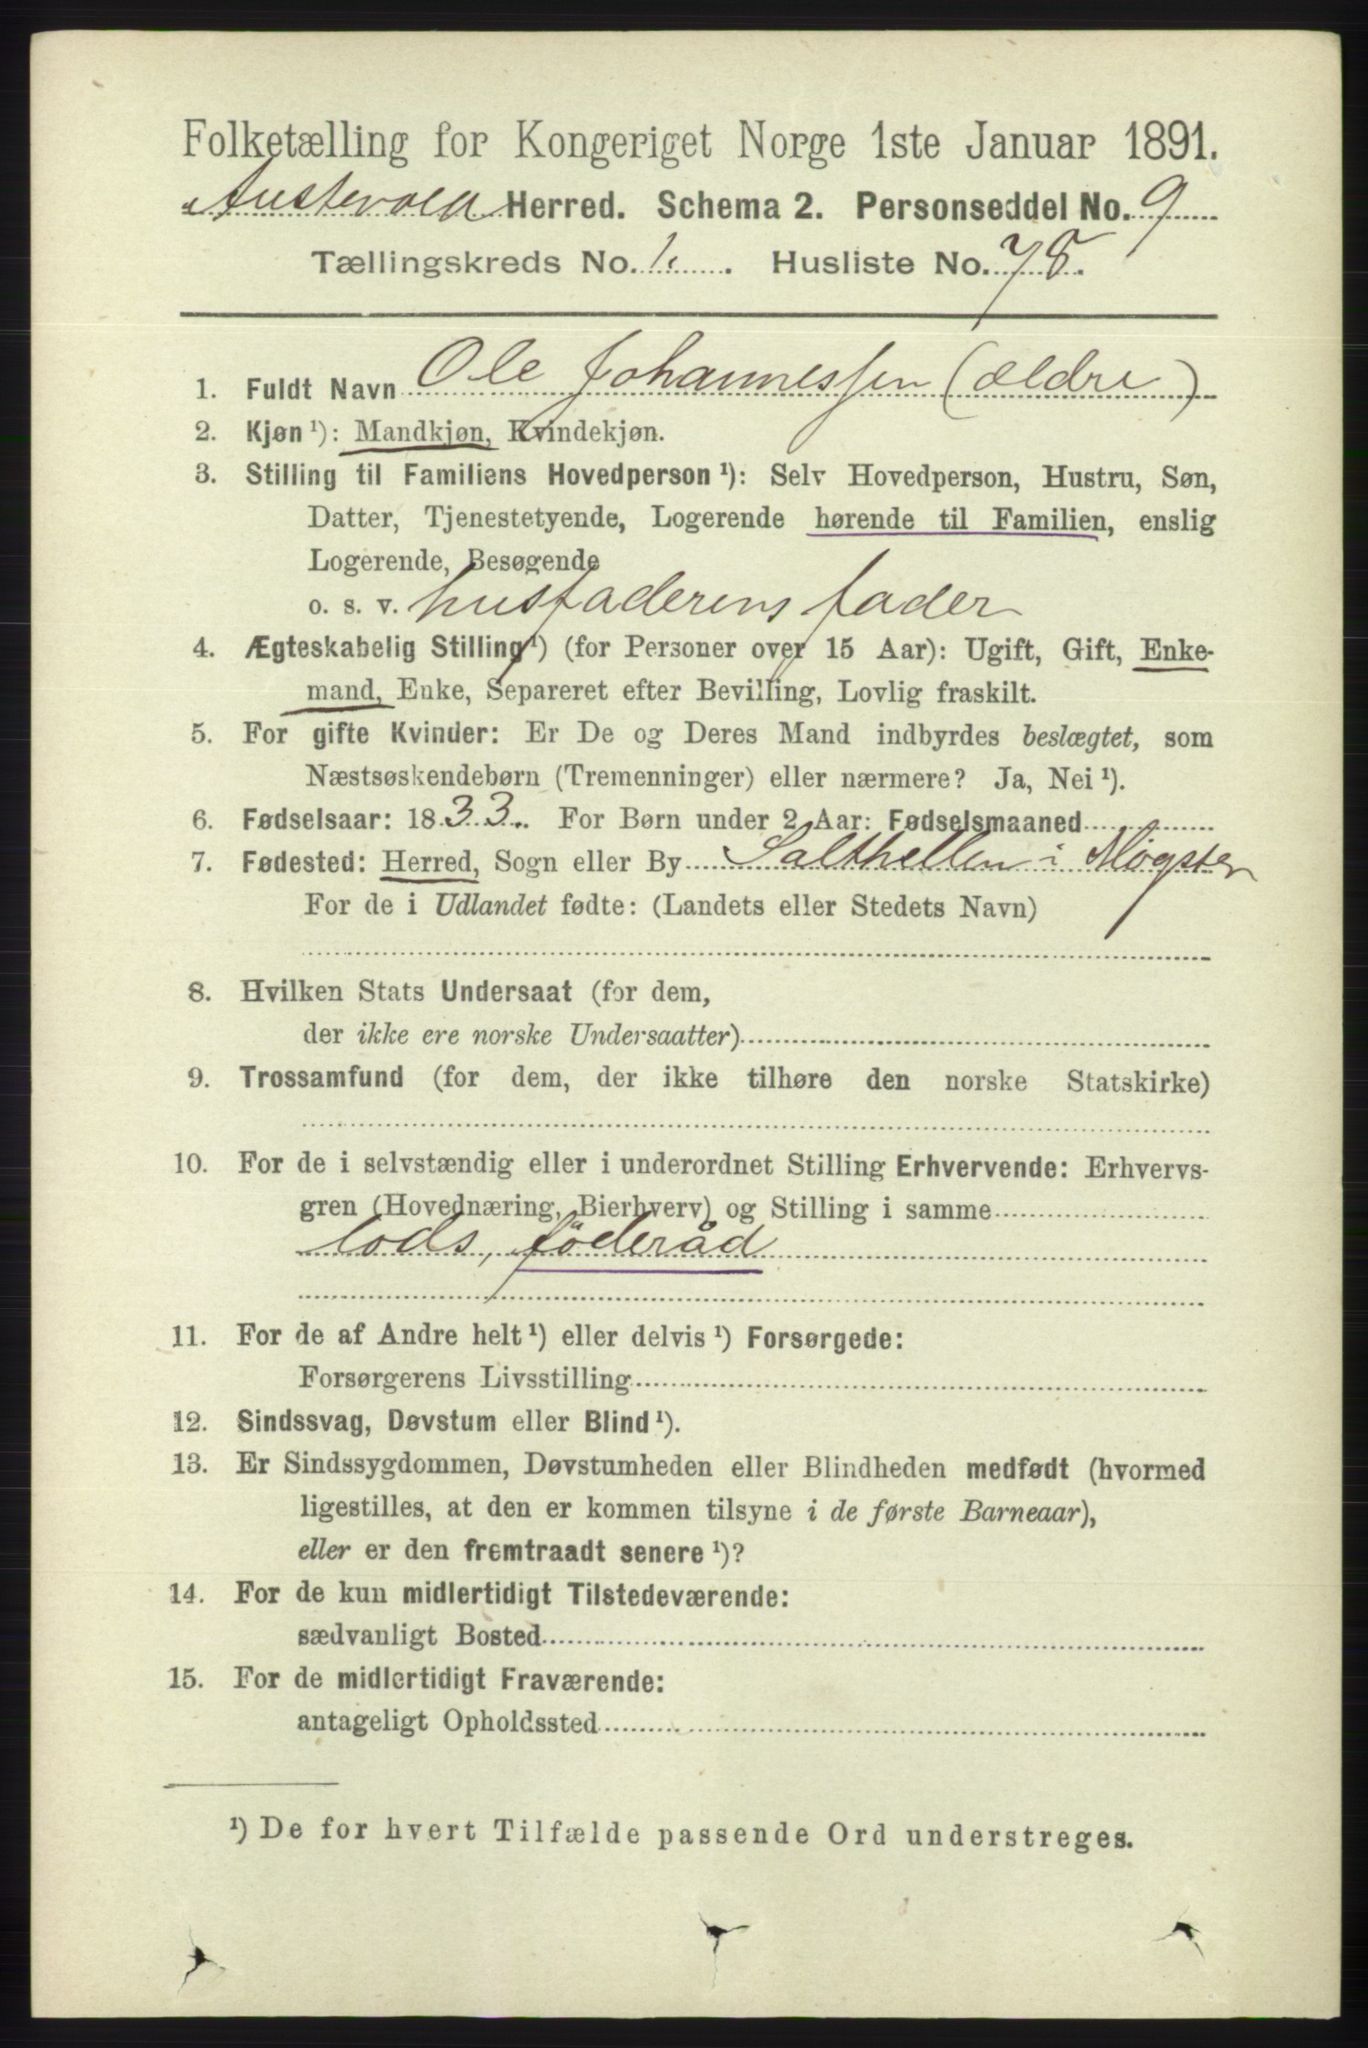 Folketælling for Kongeriget Norge 1ste Januar 1891.
Austevold Herred. Schema 2. Personseddel No. 9
Tællingskreds No. 1. Husliste No. 78.
1. Fuldt Navn Ole Johannessen (ældre)
2. Kjøn ¹): Mandkjøn, Kvindekjøn.
3. Stilling til Familiens Hovedperson ¹): Selv Hovedperson, Hustru, Søn,
Datter, Tjenestetyende, Logerende hørende til Familien, enslig
Logerende, Besøgende
o. s. v. husfaderens fader
4. Ægteskabelig Stilling ¹) (for Personer over 15 Aar): Ugift, Gift, Enke-
mand, Enke, Separeret efter Bevilling, Lovlig fraskilt.
5. For gifte Kvinder: Er De og Deres Mand indbyrdes beslægtet, som
Næstsøskendebørn (Tremenninger) eller nærmere? Ja, Nei ¹).
6. Fødselsaar: 1833. For Børn under 2 Aar: Fødselsmaaned
7. Fødested: Herred, Sogn eller By Salthellen i Møgster
For de i Udlandet fødte: (Landets eller Stedets Navn)
8. Hvilken Stats Undersaat (for dem,
der ikke ere norske Undersaatter)
9. Trossamfund (for dem, der ikke tilhøre den norske Statskirke)
10. For de i selvstændig eller i underordnet Stilling Erhvervende: Erhvervs-
gren (Hovednæring, Bierhverv) og Stilling i samme
lods, föderåd
11. For de af Andre helt ¹) eller delvis ¹) Forsørgede:
Forsørgerens Livsstilling
12. Sindssvag, Døvstum eller Blind ¹).
13. Er Sindssygdommen, Døvstumheden eller Blindheden medfødt (hvormed
ligestilles, at den er kommen tilsyne i de første Barneaar),
eller er den fremtraadt senere ¹)?
14. For de kun midlertidigt Tilstedeværende:
sædvanligt Bosted
15. For de midlertidigt Fraværende:
antageligt Opholdssted
¹) De for hvert Tilfælde passende Ord understreges.